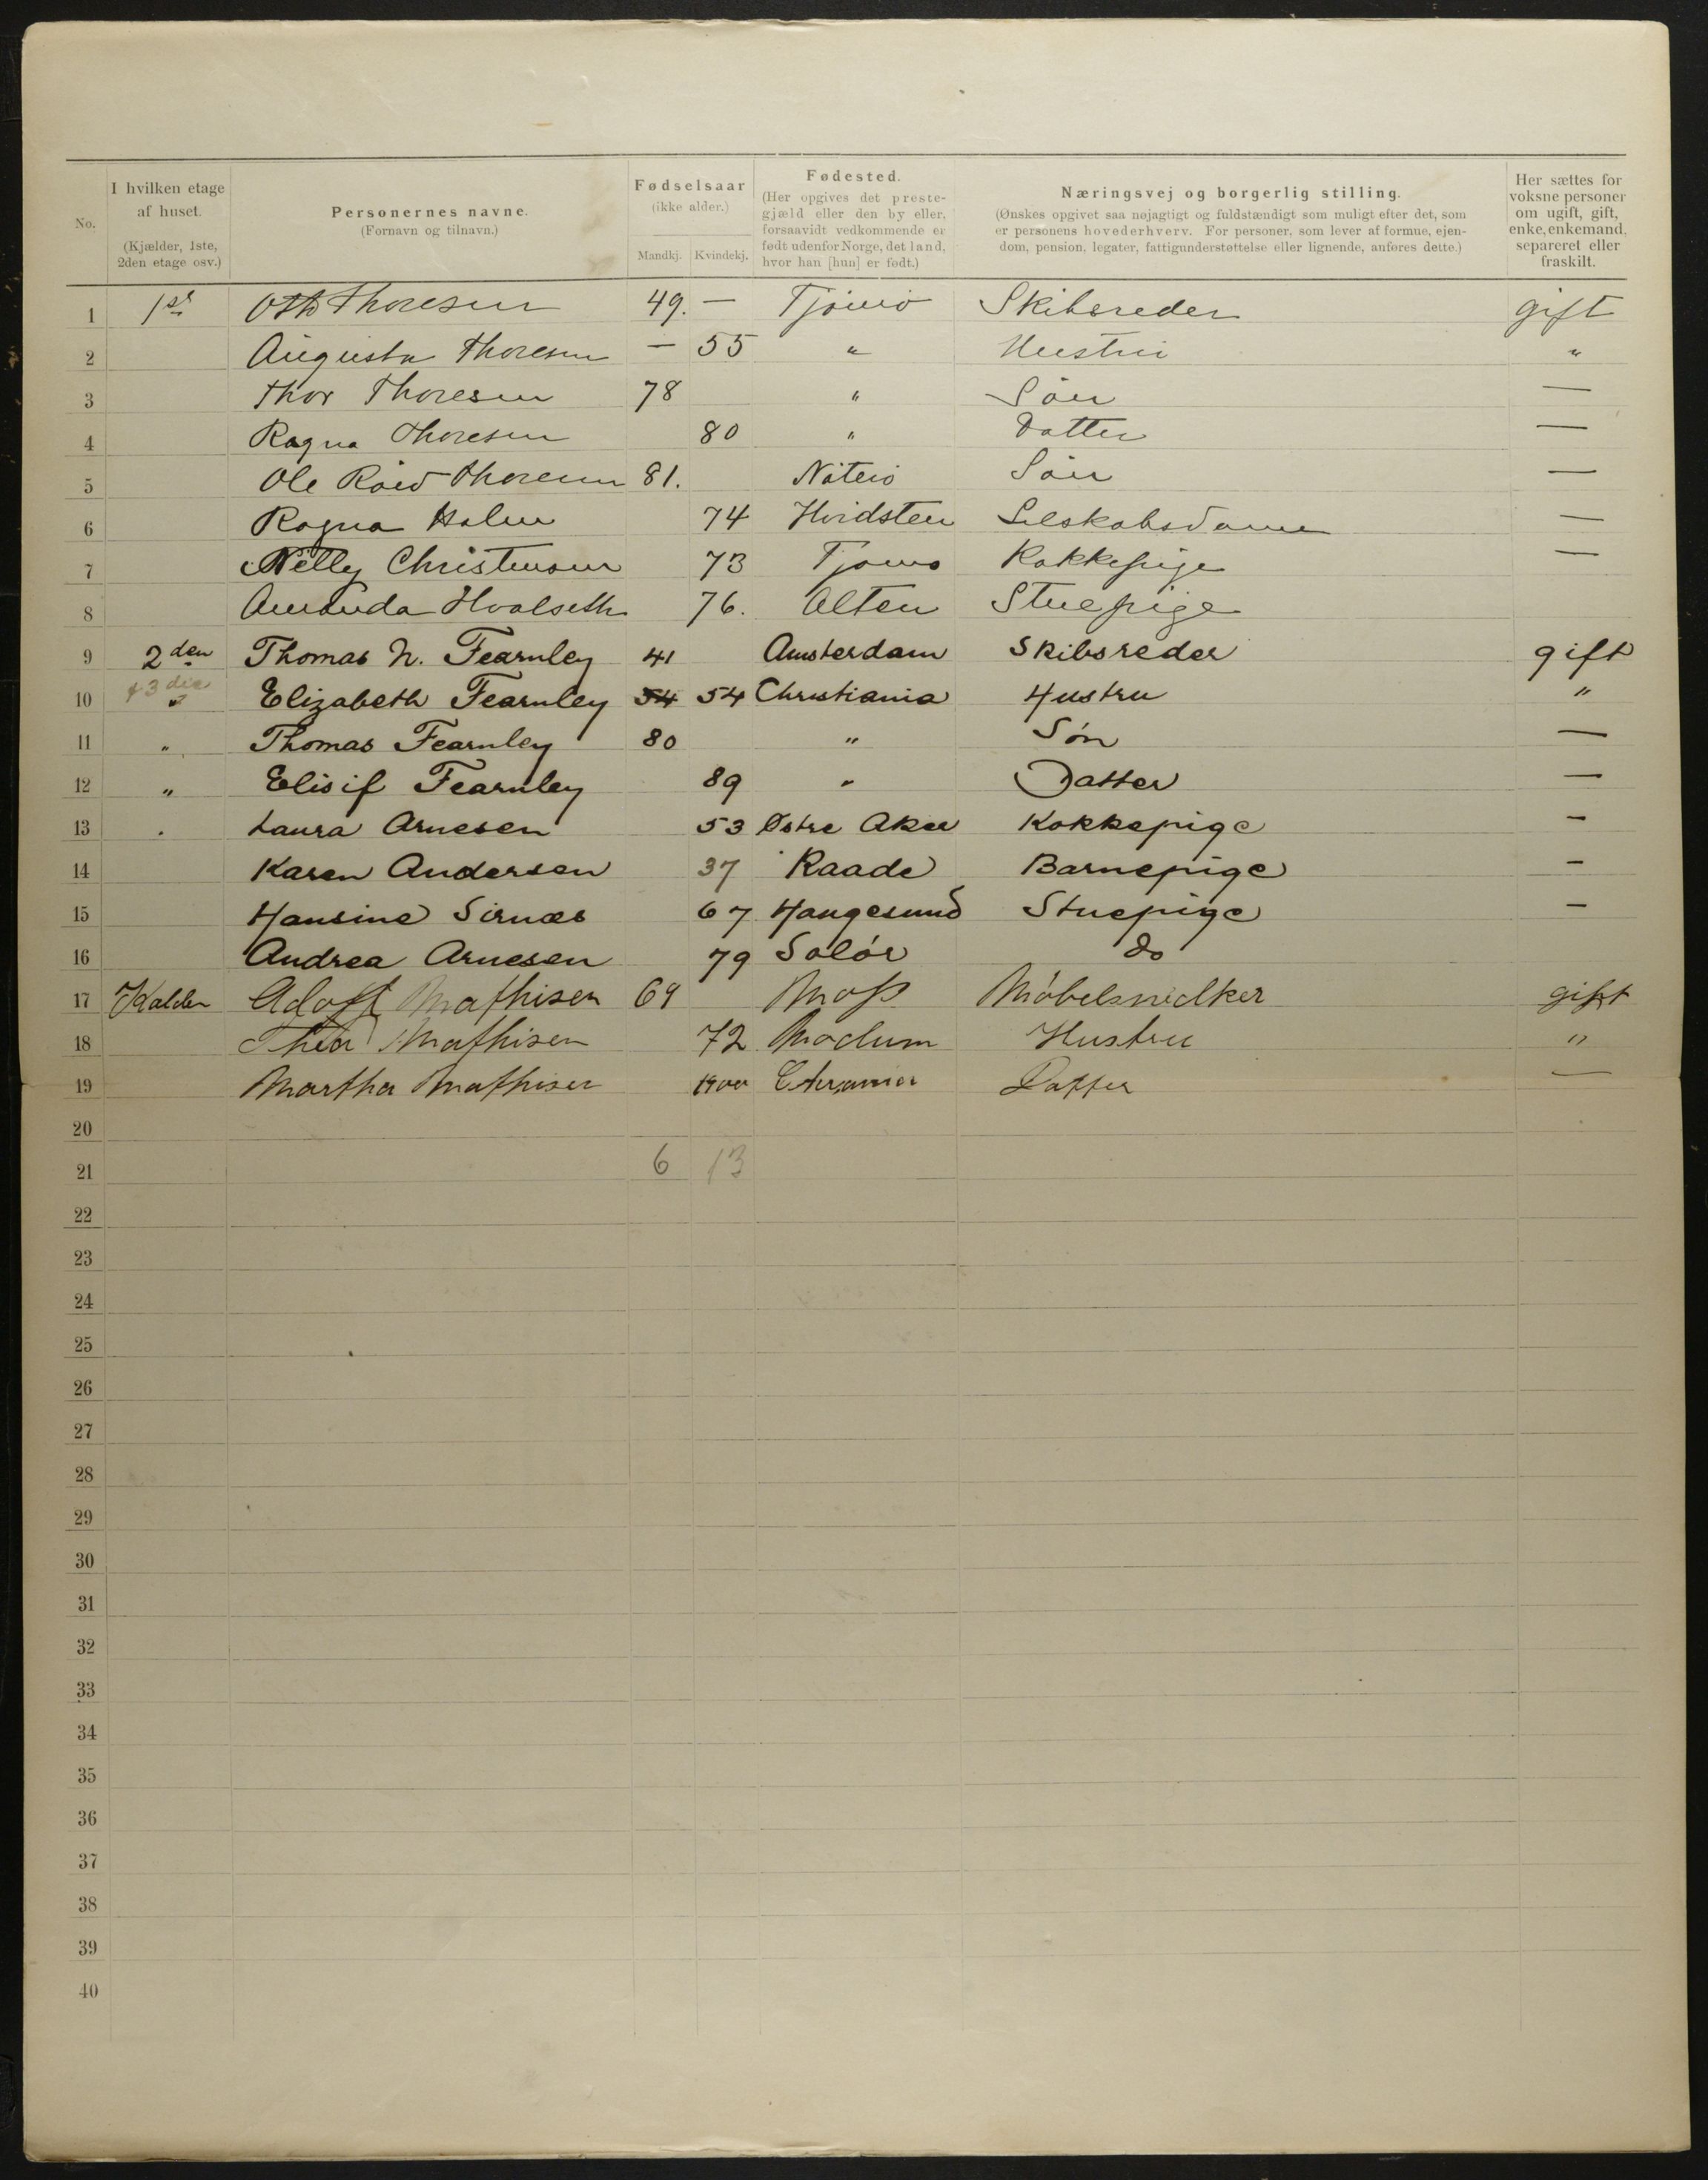 No.
I hvilken etage af huset. (Kjælder, 1ste, 2den etage osv.)
Personernes navne. (Fornavn og tilnavn.)
Fødselsaar (ikke alder.) Mandkj. Kvindekj.
Fødested. (Her opgives det prestegjæld eller den by eller, forsaavidt vedkommende er født udenfor Norge, det land, hvor han [hun] er født.)
Næringsvej og borgerlig stilling. (Ønskes opgivet saa nøjagtigt og fuldstændigt som muligt efter det, som er personens hovederhverv. For personer, som lever af formue, ejendom, pension, legater, fattigunderstøttelse eller lignende, anføres dette.)
Her sættes for voksne personer om ugift, gift, enke, enkemand, separeret eller fraskilt.
1 1st Otto Thoresen 49. — Tjømø Skibsreder gift
2 Augusta Thoresen — 55 " Hustru "
3 Thor Thoresen 78 " Søn —
4 Ragna Thoresen 80 " Datter —
5 Ole Røed Thoresen 81. Nøterø Søn —
6 Ragna Holm 74 Hvidsten Selskabsdame —
7 Nelly Christensen 73 Tjømø Kokkepige —
8 Amanda Hvalseth 76. Alten Stuepige
9 2den Thomas N. Fearnley 41 Amsterdam Skibsreder gift
10 + 3die " Elizabeth Fearnley 54 54 Christiania Hustru "
11 " Thomas Fearnley 80 " Søn —
12 " Elisif Fearnley 89 " Datter —
13 " Laura Arnesen 53 Østre Aker Kokkepige —
14 Karen Andersen 37 Raade Barnepige —
15 Hansine Sirnæs 67 Haugesund Stuepige —
16 Andrea Arnesen 79 Solør do
17 Kalder Adolf Mathisen 69 Moss Møbelsnedker gift
18 Thea Mathisen 72 Modum Hustru "
19 Martha Mathisen 1900 Datter —
20
21 6 13
22
23
24
25
26
27
28
29
30
31
32
33
34
35
36
37
38
39
40